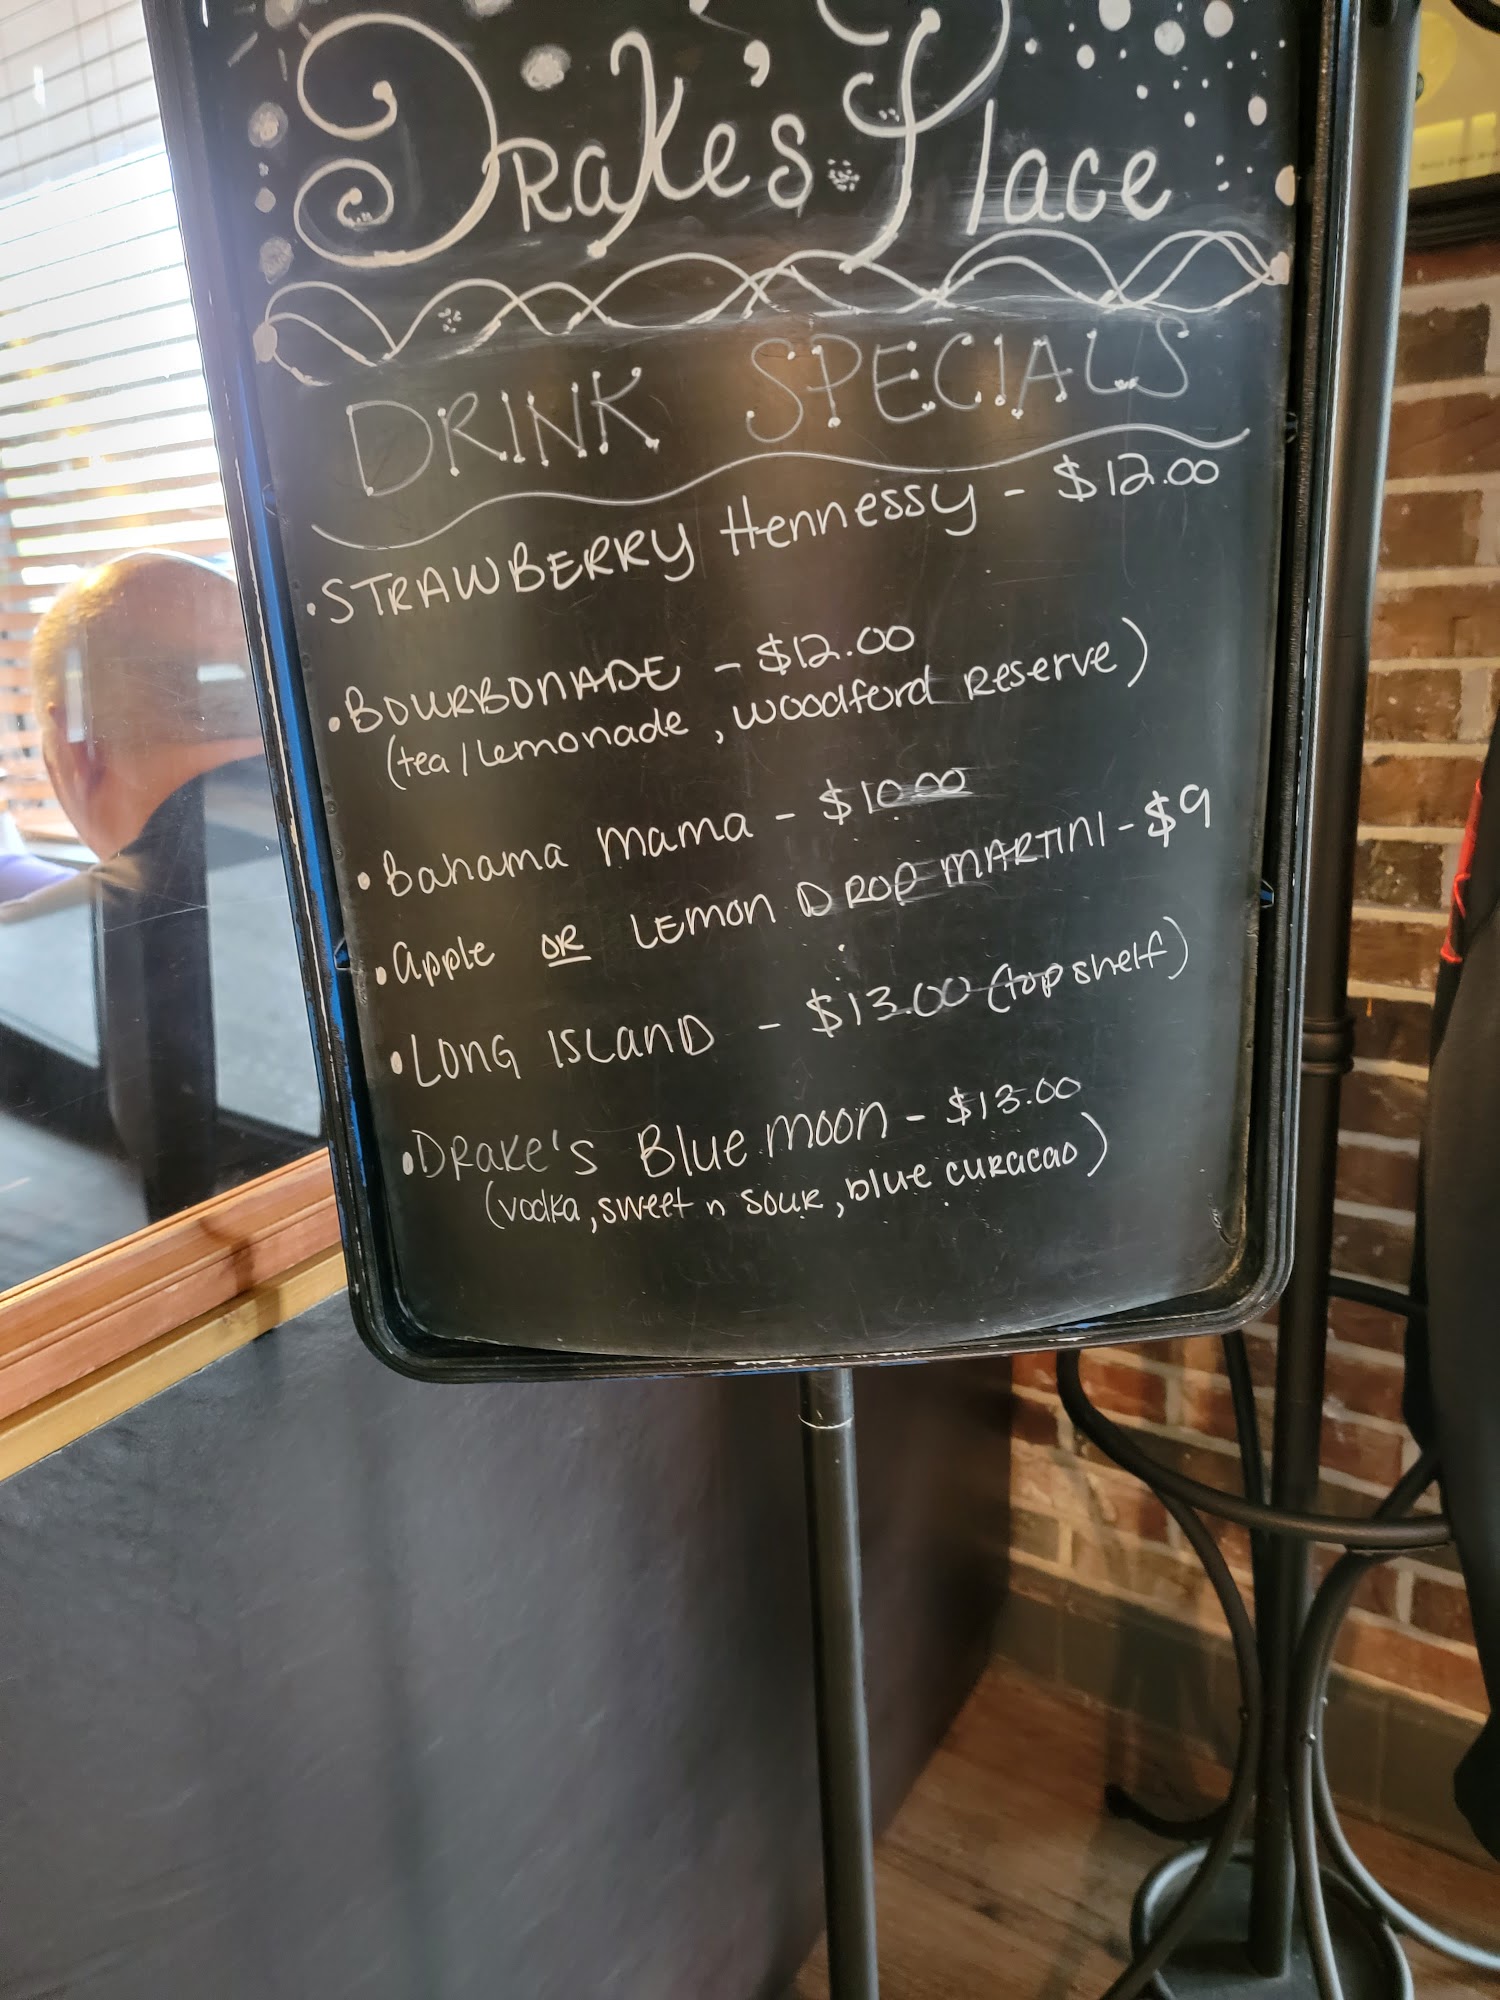 Drake's Place
DRINK SPECIALS
• STRAWBERRY Hennessy - $12.00
• BOURBONADE - $12.00
(tea/lemonade, woodford Reserve)
• Bahama mama - $10.00
• apple OR LEMON DROP MARTINI - $9
• LONG ISLAND - $13.00 (top shelf)
• DRAKE'S Blue moon - $13.00
(vodka, sweet n sour, blue curacao)